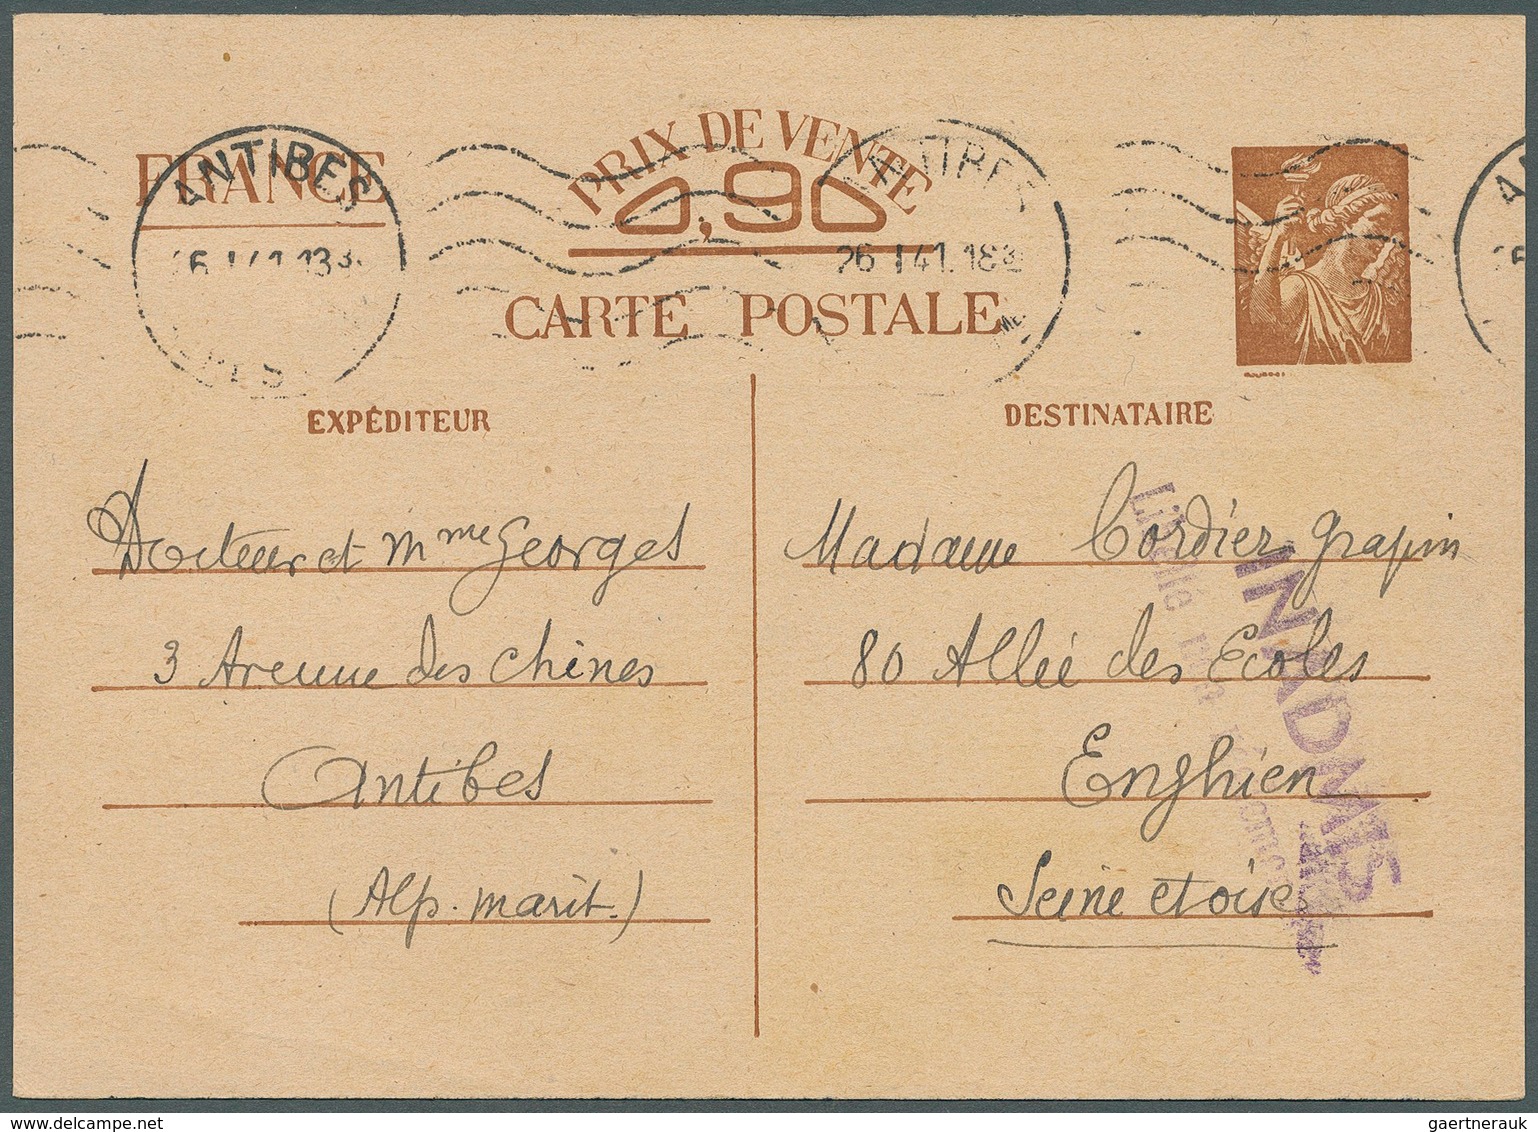 FRANCE
PRIX DE VENTE
0,90
CARTE POSTALE
ANTIBES
26 I 41. 18
EXPÉDITEUR
Docteur et Mme Georges
3 Avenue des Chênes
Antibes
(Alp. marit.)
DESTINATAIRE
Madame Cordier Grapin
80 Allée des Ecoles
Enghien
Seine et oise
INADMIS
gaertnerauk